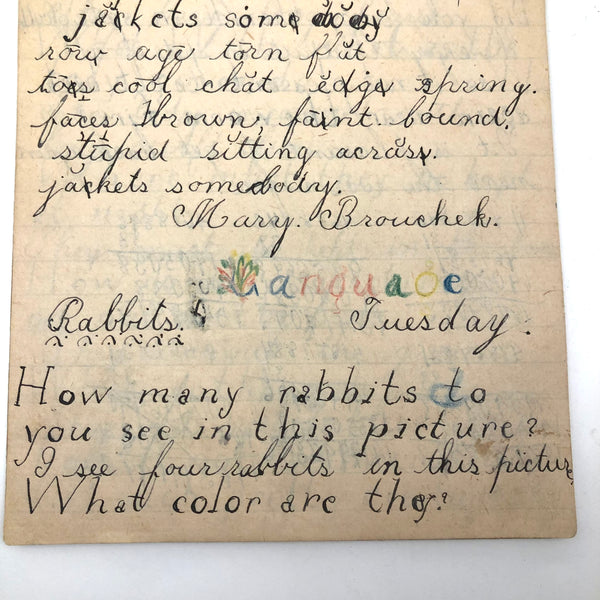 jackets somebody
row age torn flat
toes cool chat edge spring.
faces brown, faint. bound.
stupid sitting across.
jackets somebody.
Mary. Brouchek.
Language
Rabbits. Tuesday.
How many rabbits to
you see in this picture?
I see four rabbits in this picture
What color are they?